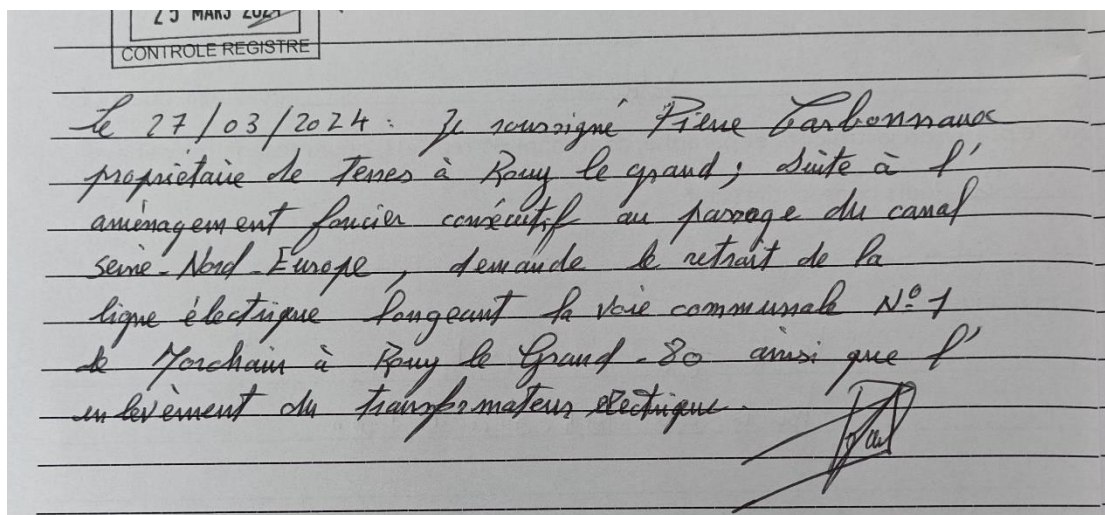 25 MARS 2024
CONTROLE REGISTRE
Le 27/03/2024 : Je soussigné Pierre Carbonnaux
propriétaire de terres à Rouy le grand ; suite à l'
aménagement foncier consécutif au passage du canal
seine-Nord-Europe, demande le retrait de la
ligne électrique longeant la voie communale N° 1
de Morchain à Rouy le Grand - 80 ainsi que l'
enlevèment du transformateur electrique.